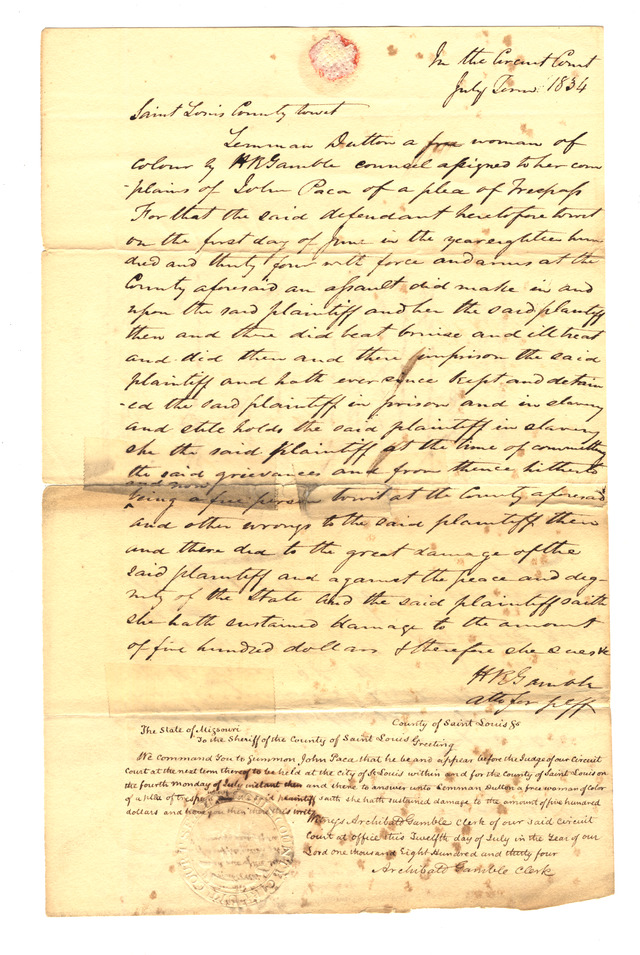 In the Circuit Court
July Term 1834
Saint Louis County towit
Lemman Dutton a free woman of
colour by H R Gamble counsel assigned to her com
-plains of John Paca of a plea of Trespass
For that the said defendant heretofore towit
on the first day of June in the year eighteen hun
dred and thirty four with force and arms at the
County aforesaid an assault did make in and
upon the said plaintiff and her the said plaintiff
then and there did beat bruise and illtreat
and did then and there imprison the said
plaintiff and hath ever since kept and detain
-ed the said plaintiff in prison and in slavery
and still holds the said plaintiff in slavery
she the said plaintiff at the time of committing
the said grievances and from thence hitherto
and now
^ being a free person towit at the County aforesaid
and other wrongs to the said plaintiff then
and there did to the great damage of the
said plaintiff and against the peace and dig-
nity of the State and the said plaintiff saith
she hath sustained damage to the amount
of five hundred dollars & therefore she sues &c
H R Gamble
atto for plff
The State of Missouri County of Saint Louis Ss
To the Sheriff of the County of Saint Louis Greeting
We Command You to Summon John Paca that he be and appear before the Judge of our Circuit
Court at the next term thereof to be held at the city of St Louis within and for the County of Saint Louis on
the fourth monday of July instant then and there to answer unto Lemman Dutton a free woman of color
of a plea of trespass the said plaintiff saith she hath sustained damage to the amount of five hundred
dollars and have you then there this writ
Witness Archibald Gamble Clerk of our said Circuit
Court at office this Twelfth day of July in the Year of our
Lord one thousand Eight Hundred and thirty four
Archibald Gamble Clerk